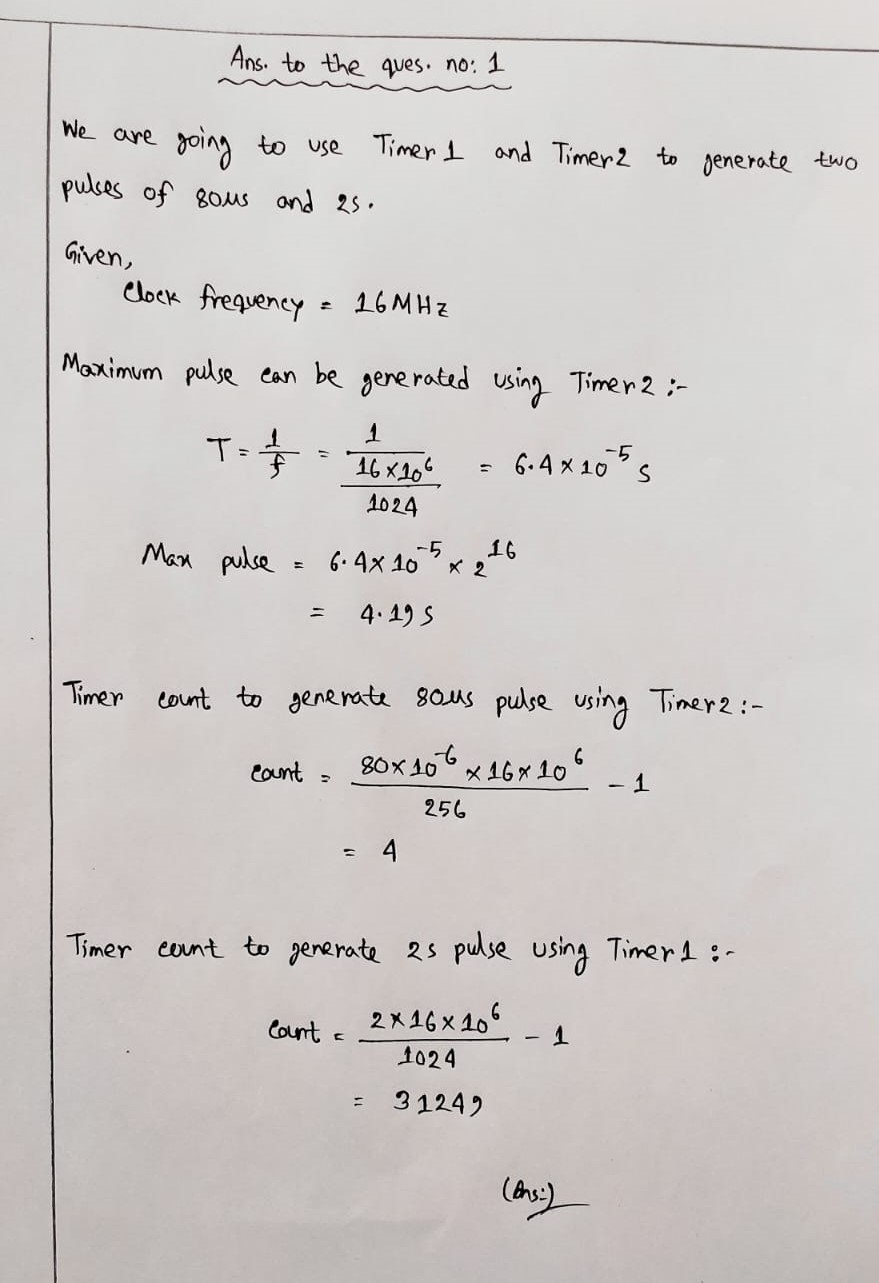 Ans. to the ques. no: 1
We are going to use Timer 1 and Timer 2 to generate two
pulses of 80us and 2s.
Given,
Clock frequency = 16 MHz
Maximum pulse can be generated using Timer 2 :-
T = 1/f = 1/((16 × 10^6)/1024) = 6.4 × 10^-5 s
Max pulse = 6.4 × 10^-5 × 2^16
= 4.19 s
Timer count to generate 80us pulse using Timer 2 :-
Count = (80 × 10^-6 × 16 × 10^6)/256 - 1
= 4
Timer count to generate 2s pulse using Timer 1 :-
Count = (2 × 16 × 10^6)/1024 - 1
= 31249
(Ans:)